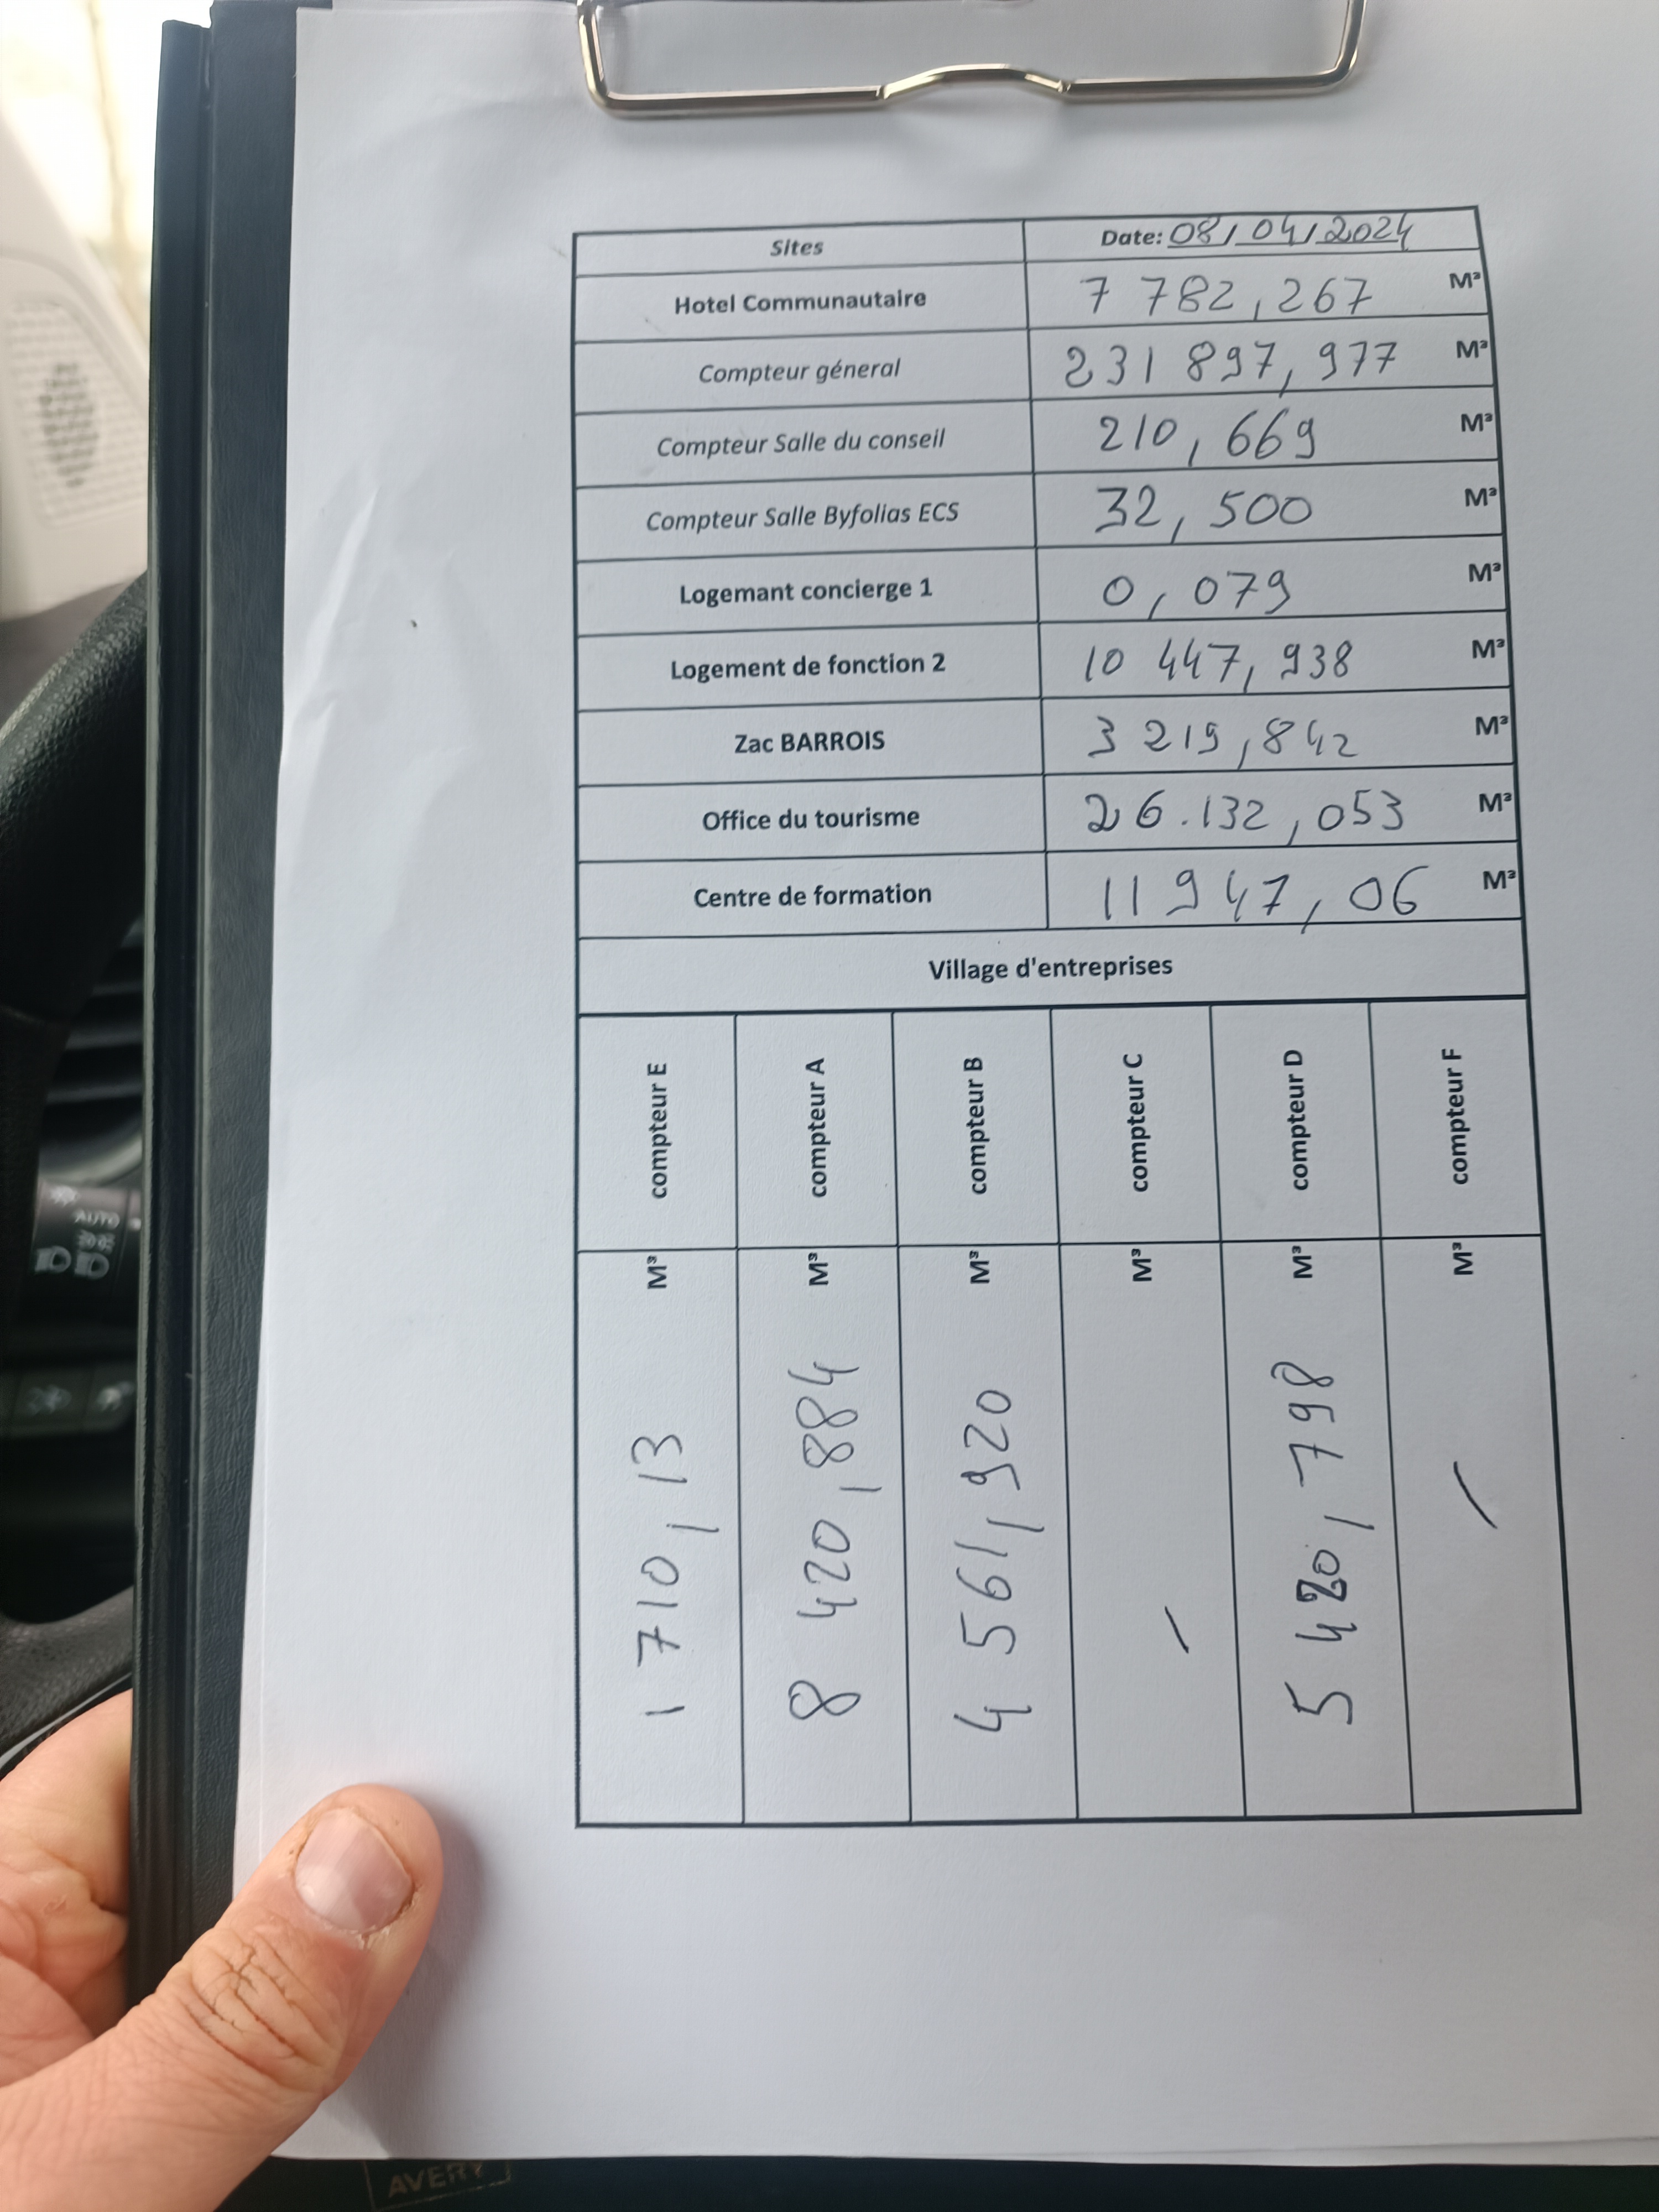 Sites Date: 08/04/2024
Hotel Communautaire 7 782,267 M³
Compteur géneral 231 897,977 M³
Compteur Salle du conseil 210,669 M³
Compteur Salle Byfolias ECS 32,500 M³
Logemant concierge 1 0,079 M³
Logement de fonction 2 10 447,938 M³
Zac BARROIS 3 219,842 M³
Office du tourisme 26.132,053 M³
Centre de formation 11 947,06 M³
Village d'entreprises
compteur E 1 710,13 M³
compteur A 8 420,884 M³
compteur B 4 561,920 M³
compteur C / M³
compteur D 5 420,798 M³
compteur F / M³
AUTO
AVERY